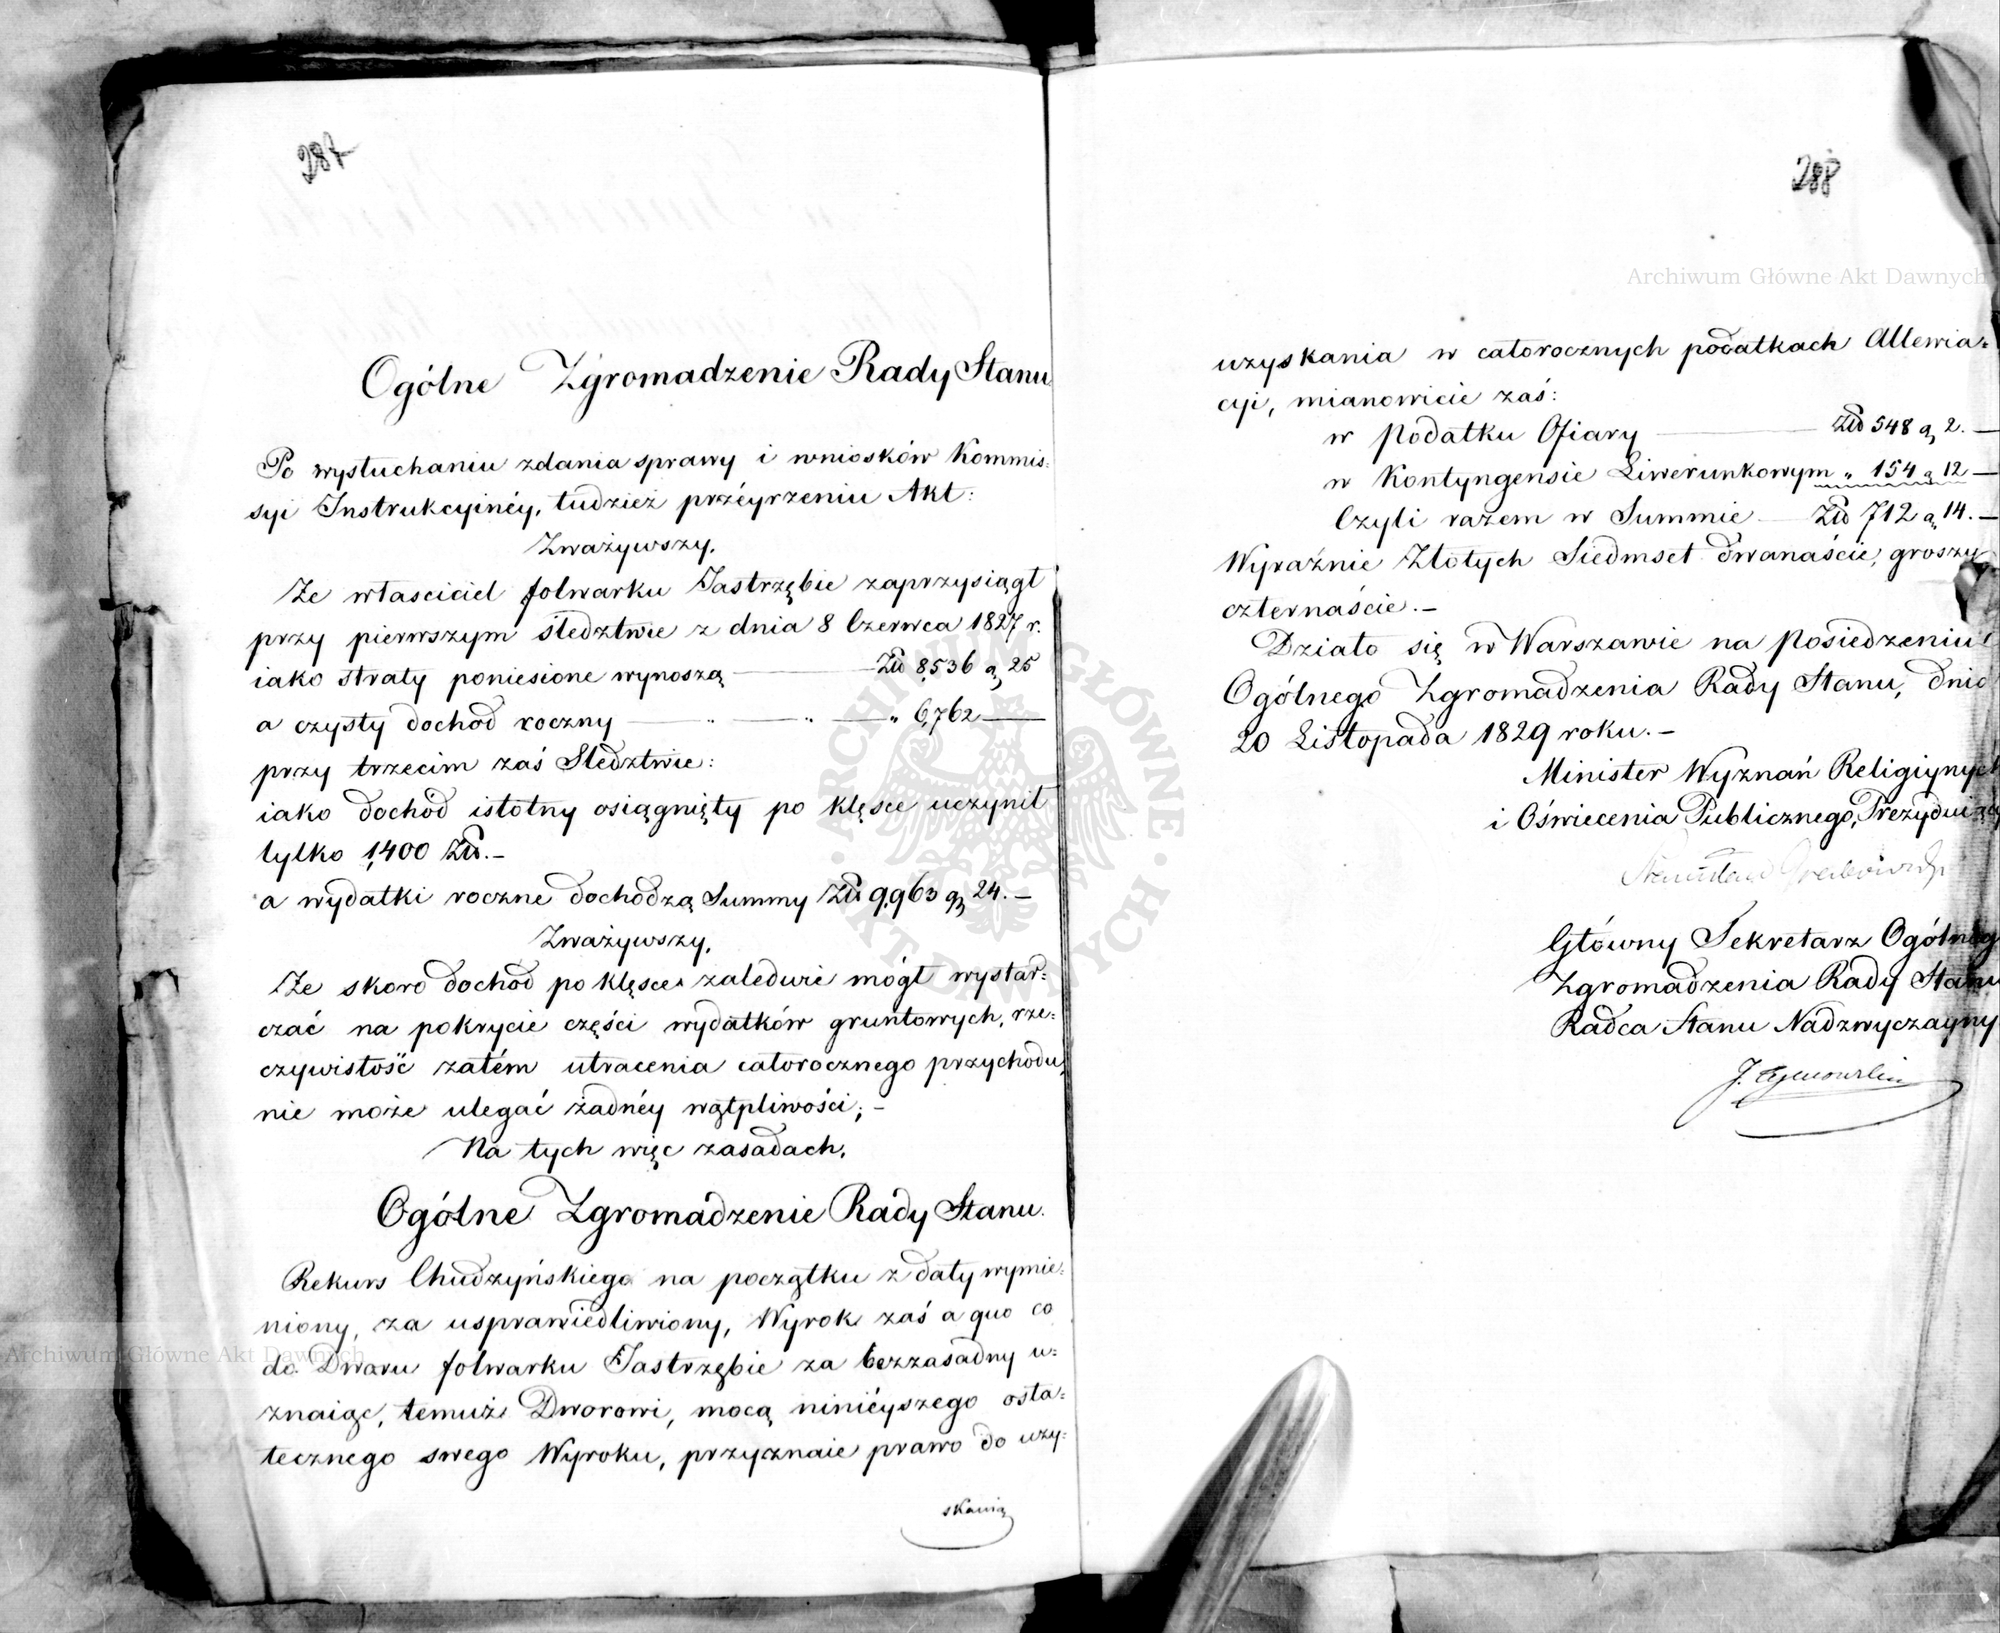 287
Ogólne Zgromadzenie Rady Stanu
Po wysłuchaniu zdania sprawy i wniosków Kommis:
syi Instrukcyinéy, tudzież przéyrzeniu Akt:
Zważywszy,
Że właściciel folwarku Jastrzębie zaprzysiągł
przy pierwszym śledztwie z dnia 8 Czerwca 1827 r.
iako straty poniesione wynoszą Złł 8,536 g 25
a czysty dochód roczny " " " 6,762
przy trzecim zaś Śledztwie:
iako dochód istotny osiągnięty po klęsce uczynił
tylko 1,400 Złł.–
a wydatki roczne dochodzą Summy Złł 9,963 g 24.–
Zważywszy,
Że skoro dochód po klęsce zaledwie mógł wystar:
czać na pokrycie części wydatków gruntowych, rze:
czywistość zatém utracenia całorocznego przychodu,
nie może ulegać żadnéy wątpliwości;–
Na tych więc zasadach,
Ogólne Zgromadzenie Rady Stanu.
Rekurs Chudzyńskiego na początku z daty wymie:
niony, za usprawiedliwiony, Wyrok zaś a quo co
do Dworu folwarku Jastrzębie za bezzasadny u:
znaiąc, temuż Dworowi, mocą ninieyszego osta:
tecznego swego Wyroku, przyznaie prawo do uzy:
skania
288
uzyskania w całorocznych podatkach Allewia:
cyi, mianowicie zaś:
w podatku Ofiary Złł 548 g 2.–
w Kontyngensie Liwerunkowym " 154 g 12–
Czyli razem w Summie Złł 712 g 14.–
Wyraźnie Złotych Siedmset dwanaście, groszy
czternaście.–
Działo się w Warszawie na Posiedzeniu
Ogólnego Zgromadzenia Rady Stanu, dnia
20 Listopada 1829 roku.–
Minister Wyznań Religiynych
i Oświecenia Publicznego, Prezyduiący
Stanisław Grabowski
Główny Sekretarz Ogólnego
Zgromadzenia Rady Stanu
Radca Stanu Nadzwyczayny
J. Tymowski
Archiwum Główne Akt Dawnych
Archiwum Główne Akt Dawnych
ARCHIWUM GŁÓWNE AKT DAWNYCH